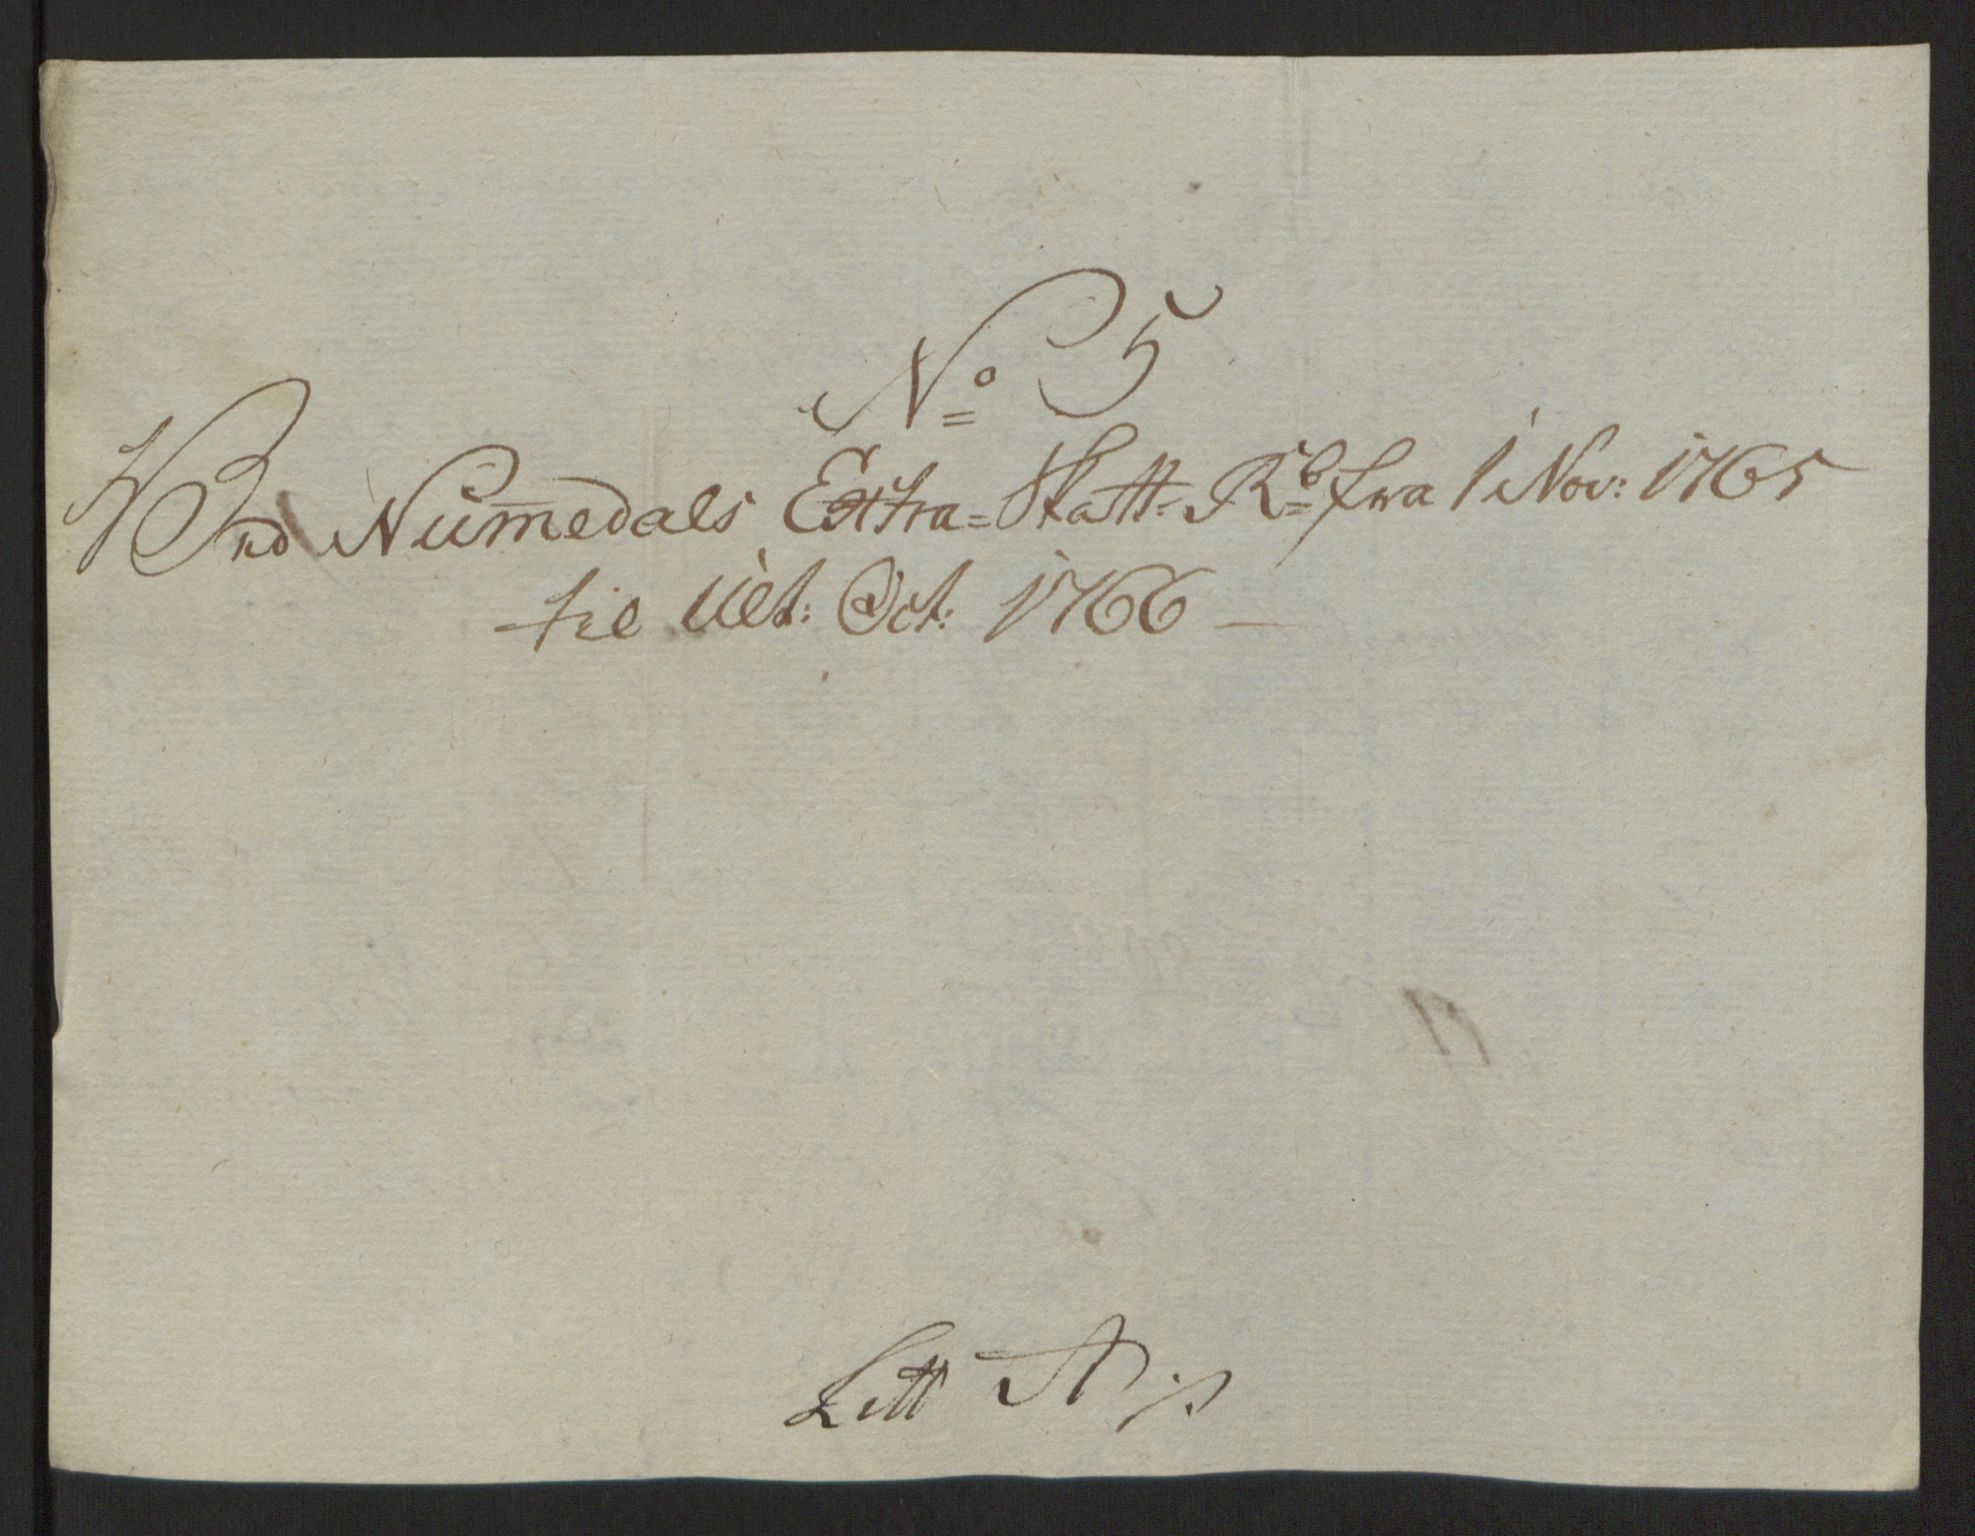 No 5
Numedals Extra-Skatt-Rb fra 1 Nov: 1765
til Ult: Oct: 1766
Litt A